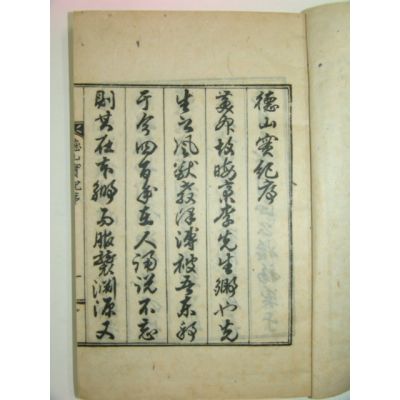 德山實紀序
故晦齋李先生鄉也先
生之風猷教澤溥被吾東到
于今四百年在人誦說不忘
則其在本鄉而服襲淵源又
德山實紀序
一